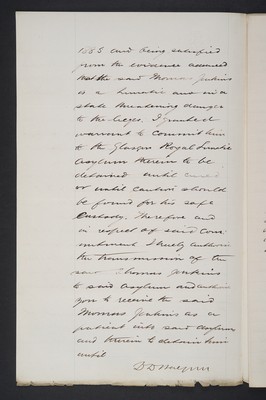 and being satisfied
from the evidence adduced
that the said Thomas Jenkins
is a lunatic and in a
state threatening danger
to the lieges, I granted
warrant to commit him
to the Glasgow Royal Lunatic
Asylum therein to be
detained until cured
or until caution should
be found for his safe
custody. Therefore and
in respect of said com-
mitment I hereby authorise
the transmission of the
said Thomas Jenkins
to said Asylum and authorise
you to receive the said
Thomas Jenkins as a
patient into said Asylum
and therein to detain him
until